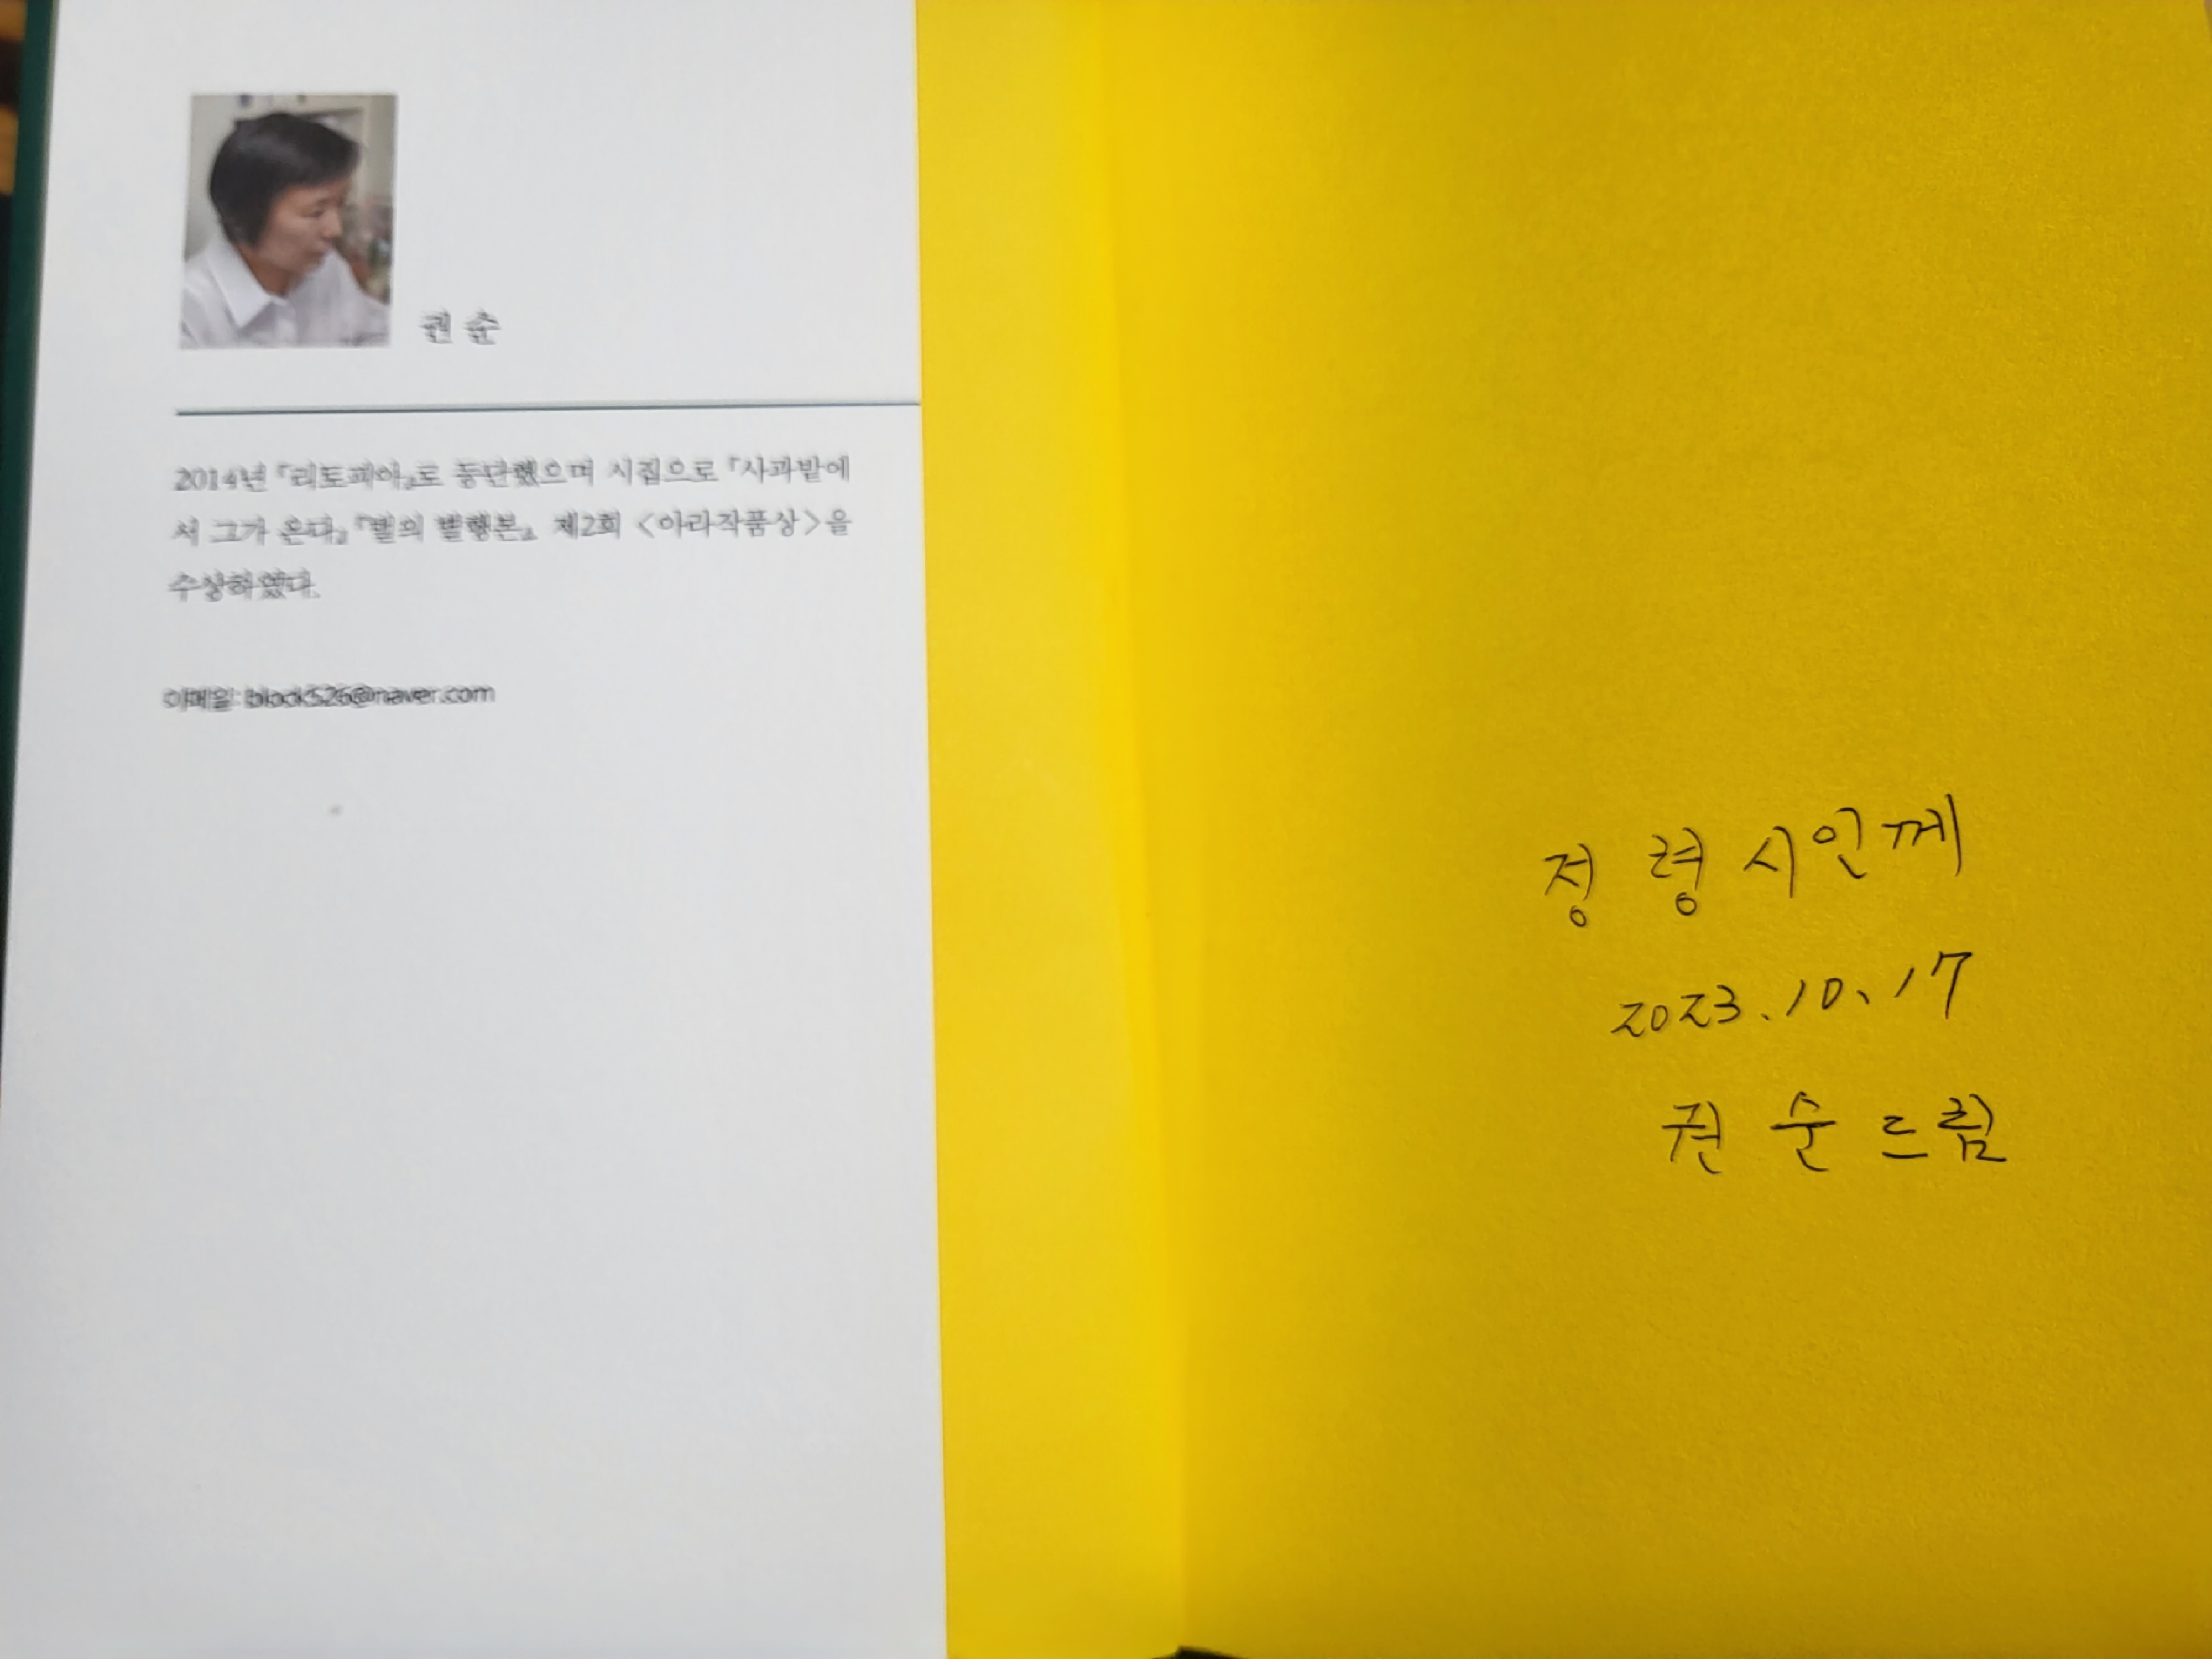 권 순
2014년 『리토피아』로 등단했으며 시집으로 『사과밭에
서 그가 온다』 『벌의 별행본』. 제2회 <아라작품상>을
수상하였다.
이메일: block526@naver.com
정 령 시인께
2023.10.17
권 순 드림